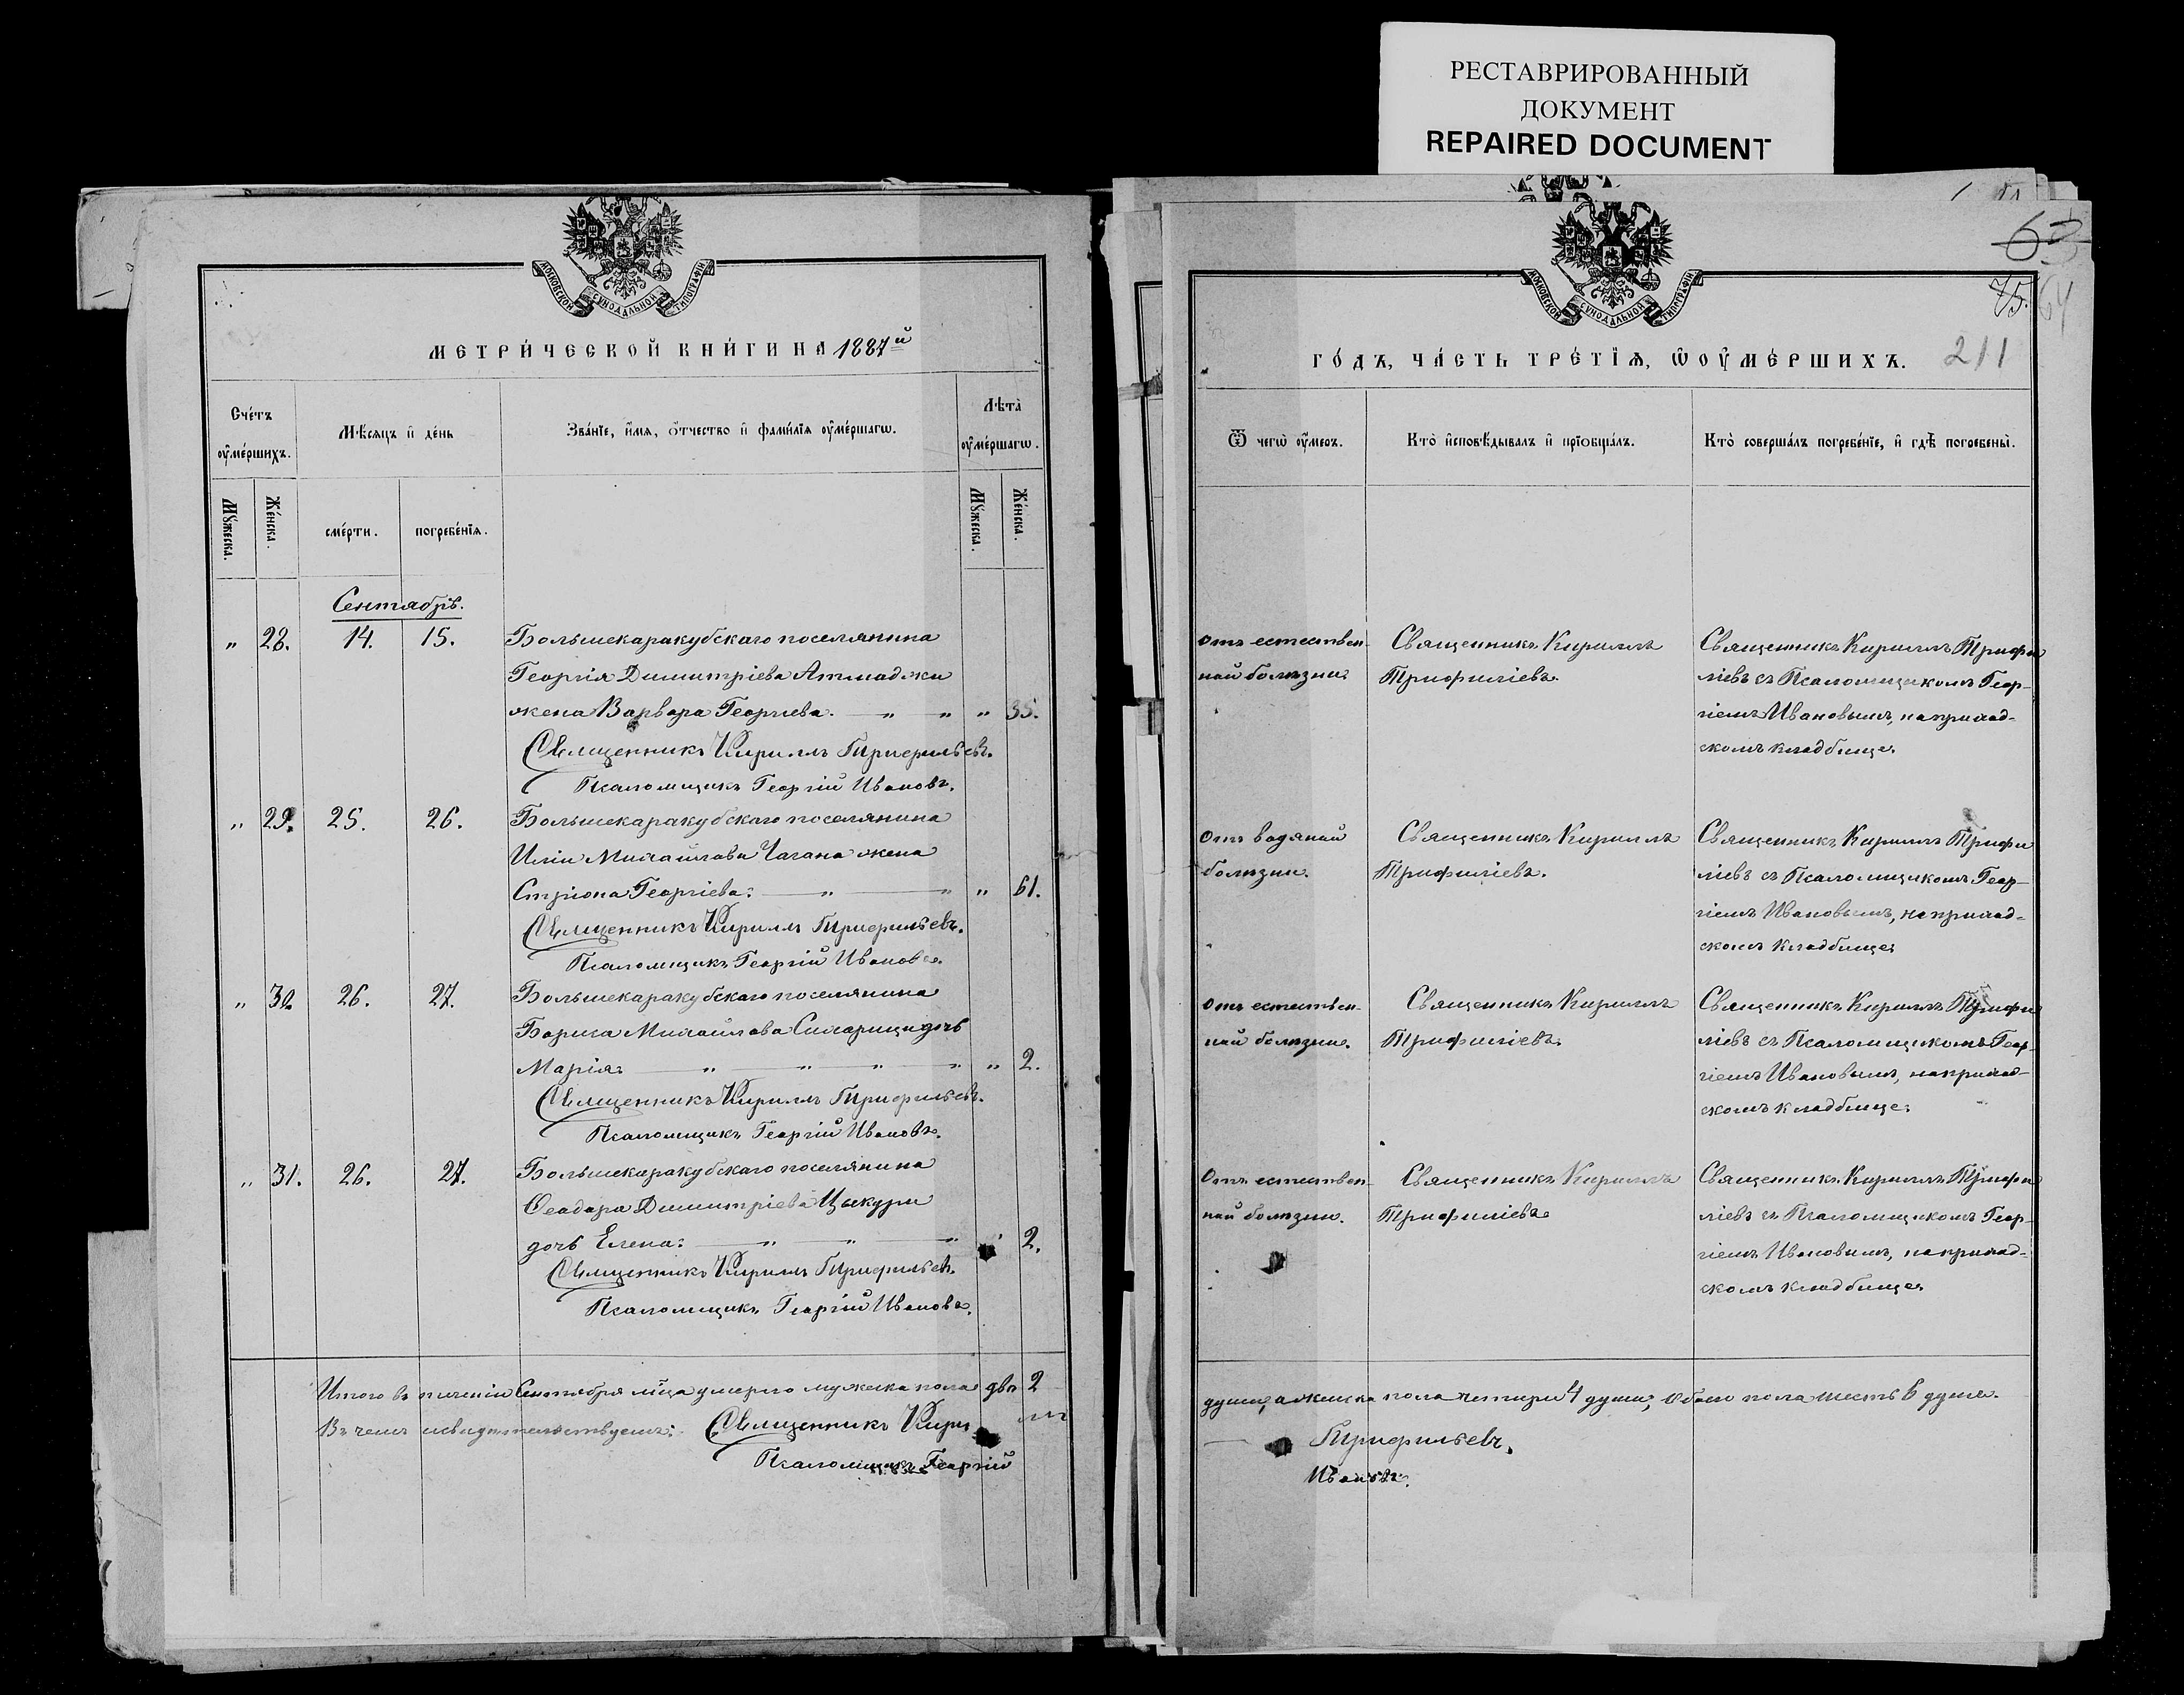 РЕСТАВРИРОВАННЫЙ
ДОКУМЕНТ
REPAIRED DOCUMENT
МОСКОВСКОЙ СѴНОДАЛЬНОЙ ТИПОГРАФІИ
МЕТРИ́ЧЕСКОЙ КНИ́ГИ НА 1887й
Сче́тъ
оу҆ме́ршихъ.
Мѣ́сяцъ и҆ де́нь
Зва́нїе, и҆́мя, ѻ҆́тчество и҆ фами́лїя оу҆ме́ршагѡ.
Лѣта̀
оу҆ме́ршагѡ.
Мꙋ́жеска.
Же́нска.
сме́рти.
погребе́нїя.
Мꙋ́жеска.
Же́нска.
Сентябрь.
" 28. 14. 15. Большекаракубскаго поселянина
Георгія Димитріева Атмаджи
жена Варвара Георгиева. " " " 35.
Священникъ Кириллъ Трифильевъ.
Псаломщикъ Георгій Ивановъ.
" 29. 25. 26. Большекаракубскаго поселянина
Иліи Михайлова Чагана жена
Стріона Георгіева: " " " 61.
Священникъ Кириллъ Трифильевъ.
Псаломщикъ Георгій Ивановъ.
" 30. 26. 27. Большекаракубскаго поселянина
Бориса Михайлова дочь
Марія: " " " " " 2.
Священникъ Кириллъ Трифильевъ.
Псаломщикъ Георгій Ивановъ.
" 31. 26. 27. Большекаракубскаго поселянина
Ѳеодора Димитріева Цыкури
дочь Елена: " " " " 2.
Священникъ Кириллъ Трифильевъ.
Псаломщикъ Георгій Ивановъ.
Итого въ теченіи Сентября м-ца умерло мужеска пола двѣ 2
Въ чемъ и свидѣтельствуемъ: Священникъ Кирилъ
Псаломщикъ Георгій
63
75. 64
211
МОСКОВСКОЙ СѴНОДАЛЬНОЙ ТИПОГРАФІИ
ГО́ДЪ, ЧА́СТЬ ТРЕ́ТЇѦ, Ѡ҆ ОУ҆МЕ́РШИХЪ.
Ѿ чегѡ̀ оу҆́меръ.
Кто̀ и҆сповѣ́дывалъ и҆ прїобща́лъ.
Кто̀ соверша́лъ погребе́нїе, и҆ гдѣ̀ погребены̀.
Отъ естествен-
ной болѣзни.
Священникъ Кириллъ
Трифиліевъ.
Священникъ Кириллъ Трифи
ліевъ съ Псаломщикомъ Геор-
гіемъ Ивановымъ, на приход-
скомъ кладбище.
Отъ водяной
болѣзни.
Священникъ Кириллъ
Трифиліевъ.
Священникъ Кириллъ Трифи
ліевъ съ Псаломщикомъ Геор-
гіемъ Ивановымъ, на приход-
скомъ кладбище.
Отъ естествен-
ной болѣзни.
Священникъ Кириллъ
Трифиліевъ.
Священникъ Кириллъ Трифи
ліевъ съ Псаломщикомъ Геор-
гіемъ Ивановымъ, на приход-
скомъ кладбище.
Отъ естествен-
ной болѣзни.
Священникъ Кириллъ
Трифиліевъ.
Священникъ Кириллъ Трифи
ліевъ съ Псаломщикомъ Геор-
гіемъ Ивановымъ, на приход-
скомъ кладбище.
души, а женска пола четыри 4 души, Обоего пола шесть 6 душъ.
Трифильевъ.
Ивановъ.